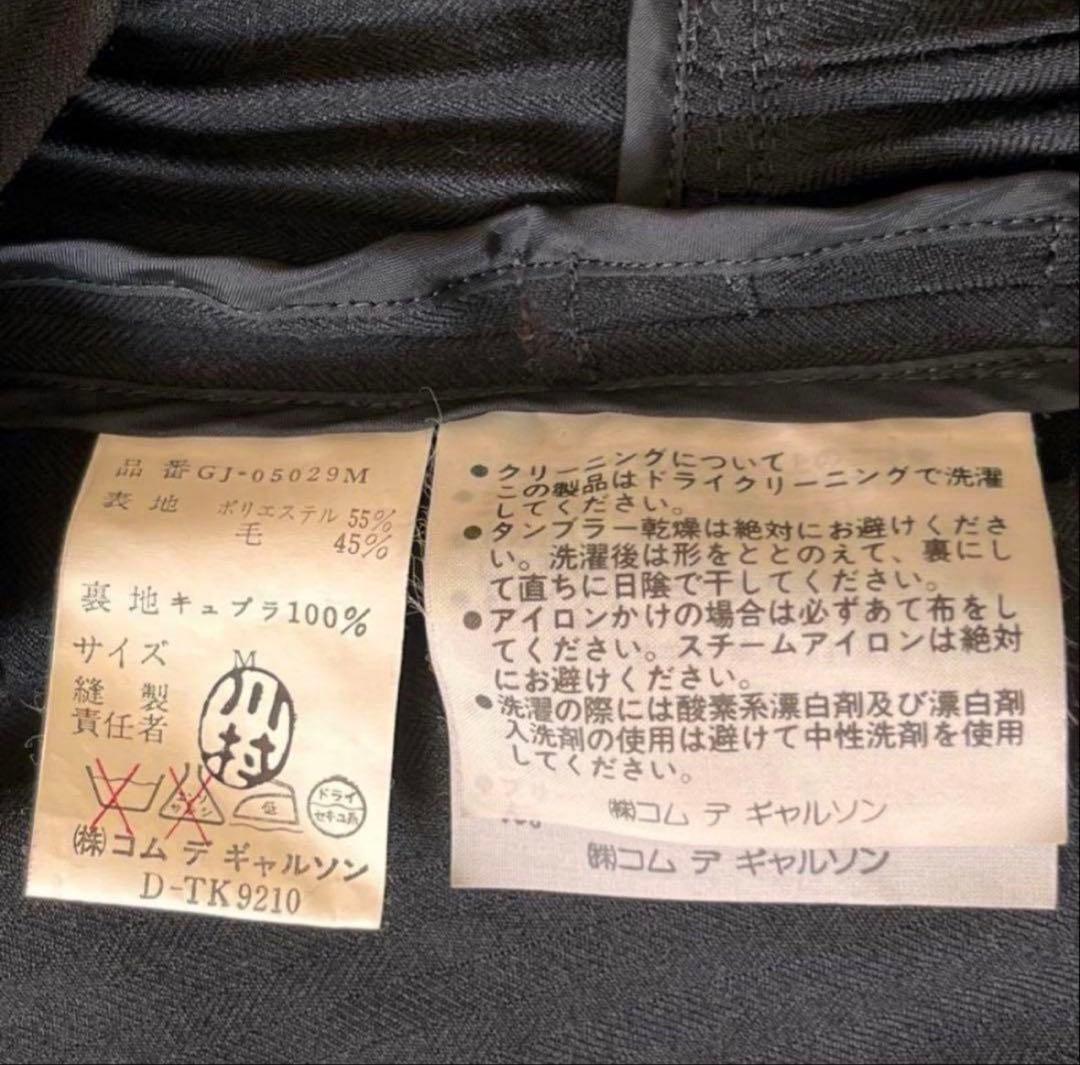 品番 GJ-05029M
表地 ポリエステル 55%
毛 45%
裏地 キュプラ100%
サイズ M
縫製
責任者
川村
エンソ
サラシ
中
ドライ
セキユ系
㈱コム デ ギャルソン
D-TK9210
●クリーニングについて
この製品はドライクリーニングで洗濯
してください。
●タンブラー乾燥は絶対にお避けくださ
い。洗濯後は形をととのえて、裏にし
て直ちに日陰で干してください。
●アイロンかけの場合は必ずあて布をし
てください。スチームアイロンは絶対
にお避けください。
●洗濯の際には酸素系漂白剤及び漂白剤
入洗剤の使用は避けて中性洗剤を使用
してください。
㈱コム デ ギャルソン
㈱コム デ ギャルソン